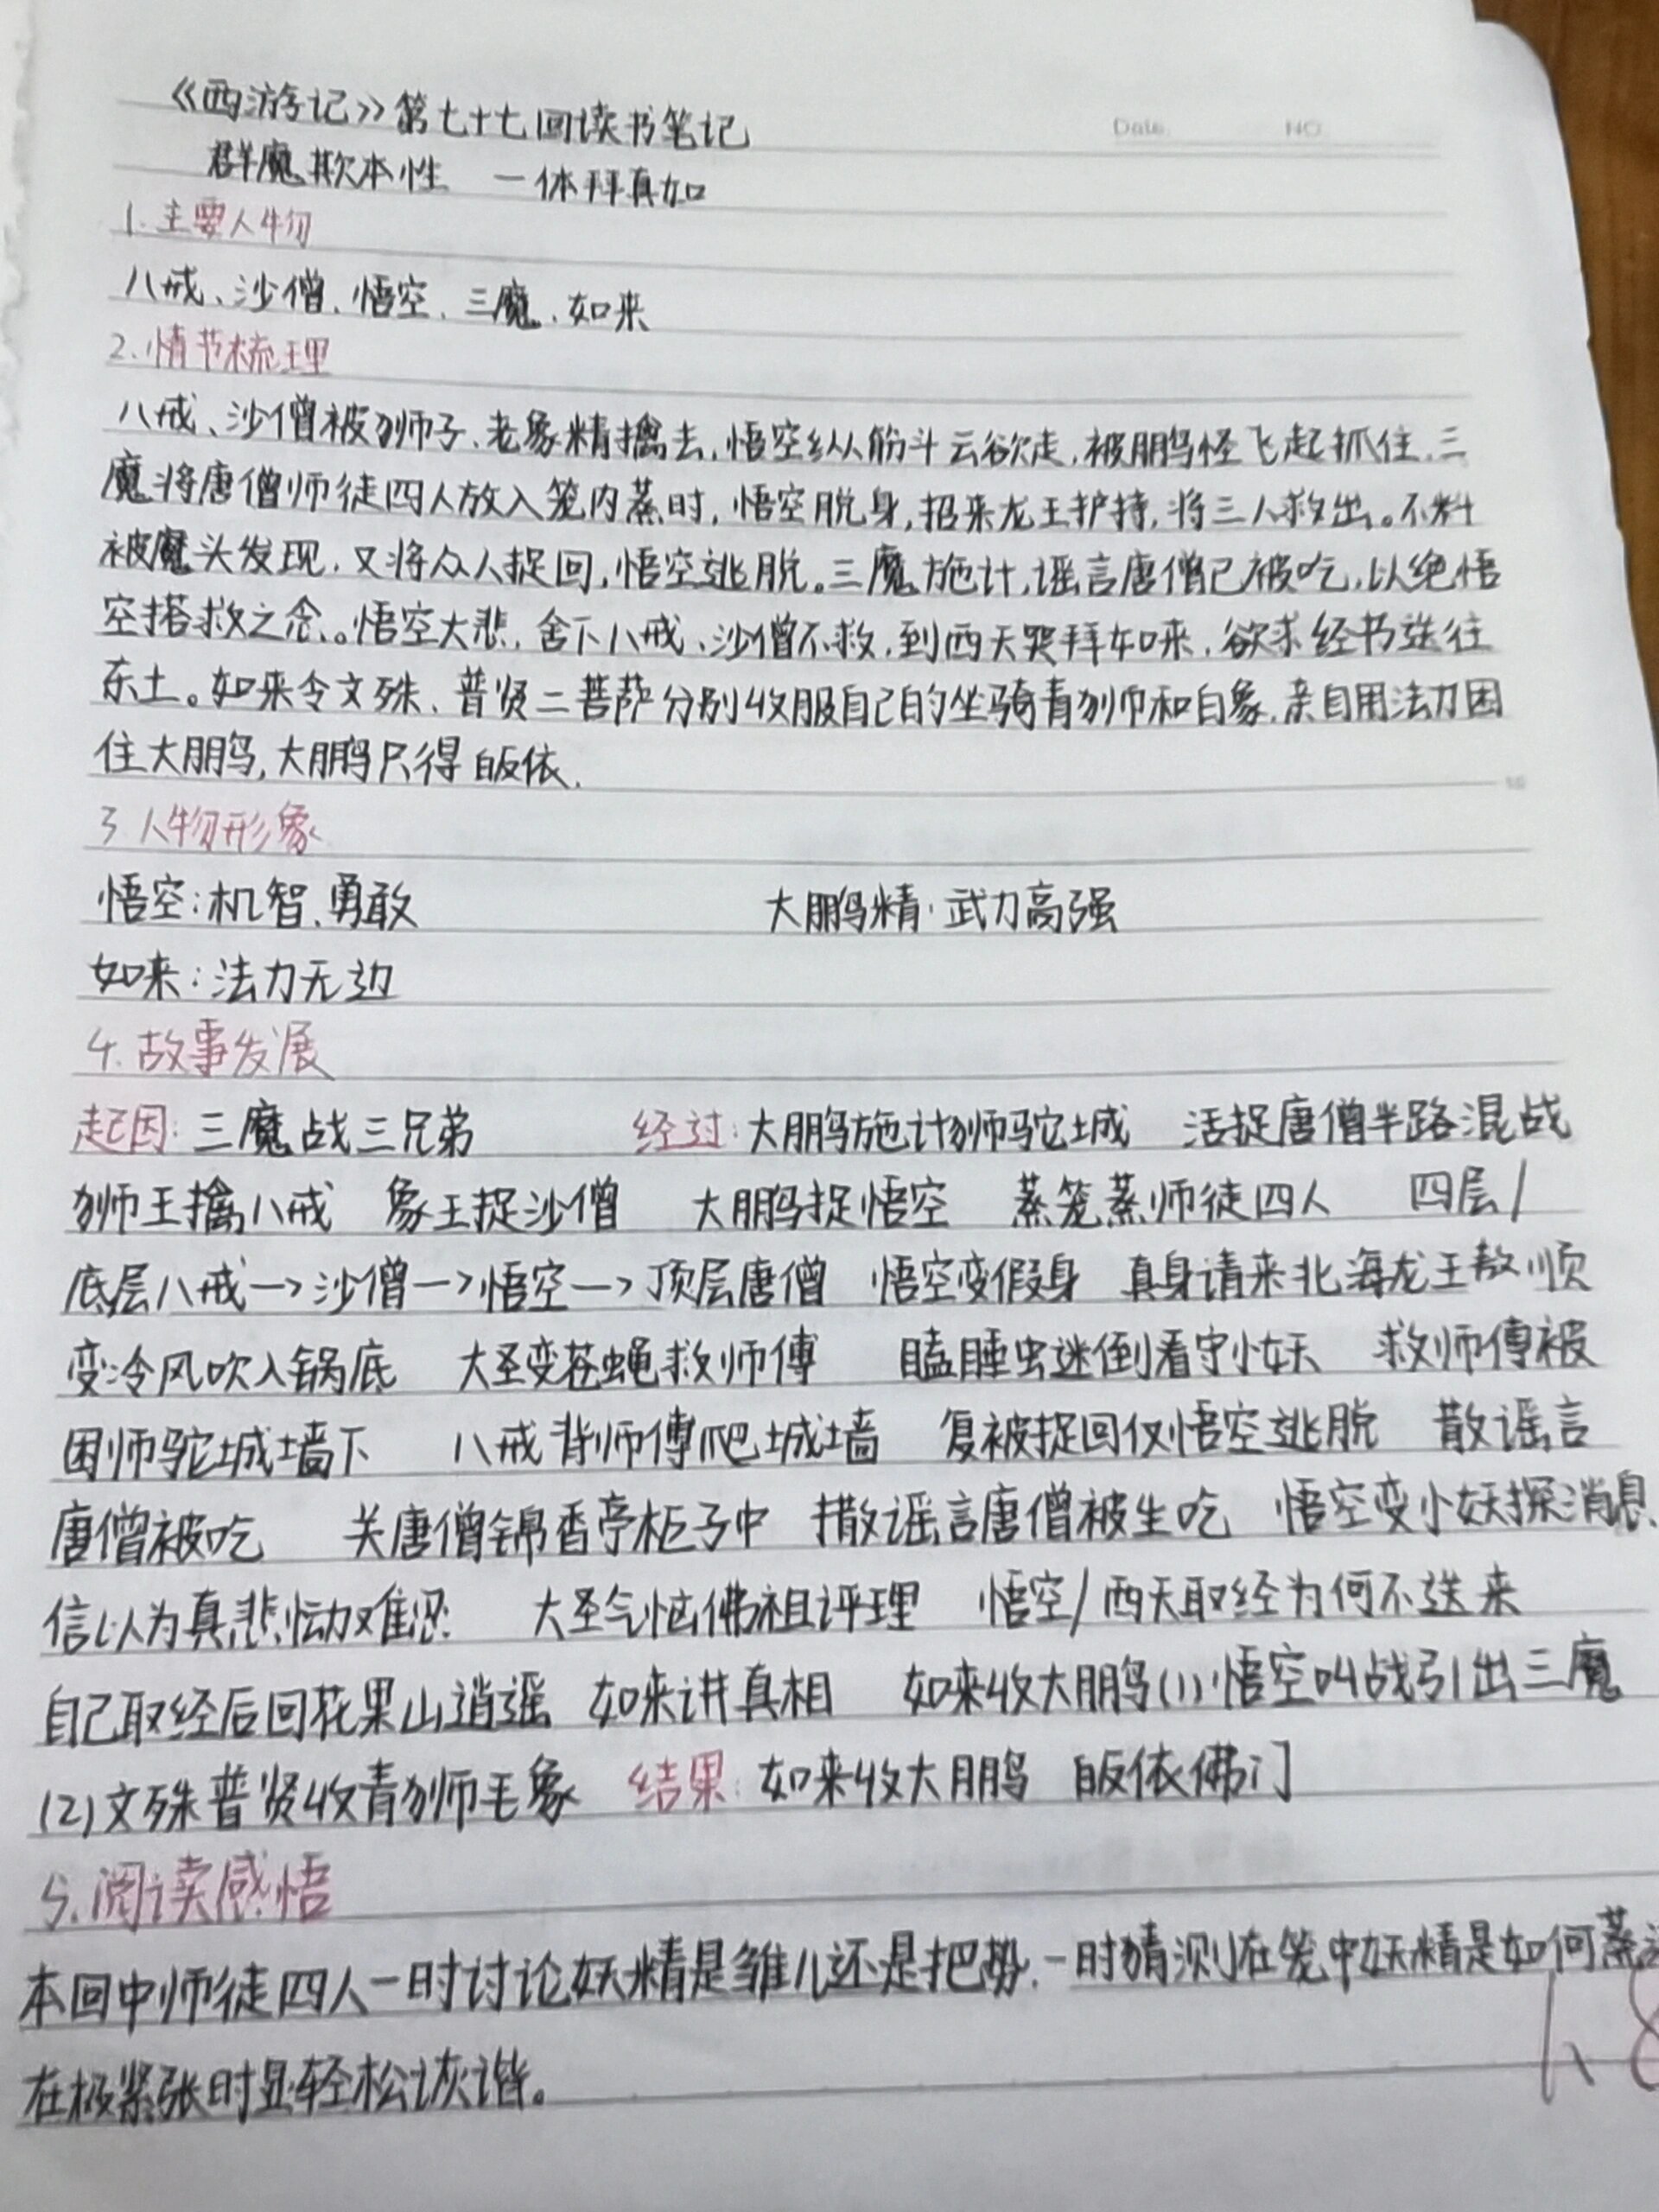 Date. NO.
《西游记》第七十七回读书笔记
群魔欺本性 一体拜真如
1. 主要人物
八戒、沙僧、悟空、三魔、如来
2. 情节梳理
八戒、沙僧被狮子、老象精擒去,悟空纵筋斗云欲走,被鹏怪飞起抓住,三
魔将唐僧师徒四人放入笼内蒸时,悟空脱身,招来龙王护持,将三人救出。不料
被魔头发现,又将众人捉回,悟空逃脱。三魔施计,谣言唐僧已被吃,以绝悟
空搭救之念。悟空大悲,舍下八戒、沙僧不救,到西天哭拜如来,欲求经书送往
东土。如来令文殊、普贤二菩萨分别收服自己的坐骑青狮和白象,亲自用法力困
住大鹏,大鹏只得皈依.
3.人物形象
悟空:机智、勇敢 大鹏精:武力高强
如来:法力无边
4.故事发展
起因:三魔战三兄弟 经过:大鹏施计狮驼城 活捉唐僧半路混战
狮王擒八戒 象王捉沙僧 大鹏捉悟空 蒸笼蒸师徒四人 四层/
底层八戒→沙僧→悟空→顶层唐僧 悟空变假身 真身请来北海龙王敖顺
变冷风吹入锅底 大圣变苍蝇救师傅 瞌睡虫迷倒看守小妖 救师傅被
困师驼城墙下 八戒背师傅爬城墙 复被捉回仅悟空逃脱 散谣言
唐僧被吃 关唐僧锦香亭柜子中 撒谣言唐僧被生吃 悟空变小妖探消息
信以为真悲恸难忍 大圣气恼佛祖评理 悟空/西天取经为何不送来
自己取经后回花果山逍遥 如来讲真相 如来收大鹏(1)悟空叫战引出三魔
(2)文殊普贤收青狮毛象 结果:如来收大鹏 皈依佛门
5.阅读感悟
本回中师徒四人一时讨论妖精是雏儿还是把势,一时猜测在笼中妖精是如何蒸
在极紧张时显轻松诙谐。